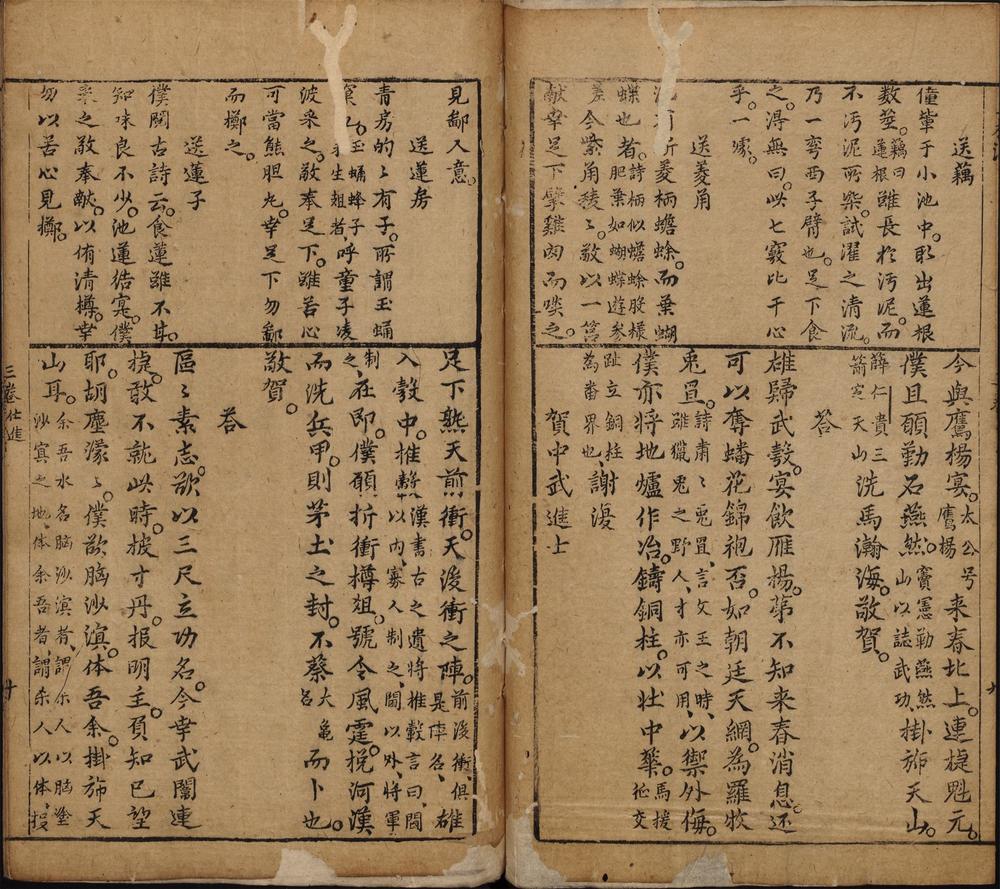 送藕
僮輩于小池中取出蓮根
数莖。藕曰蓮根雖長於汚泥而
不汚泥所染。試濯之清流。
乃一彎西子臂也。足下食
之。得無曰。此七竅比干心
乎。一噱。
送菱角
菱柄蟾蜍。而葉蝴
蝶也。詩柄似蟾蜍股樣
者。肥葉如蝴蝶遊参
差今紫角稜々。敬以一筥
献幸足下擘雞肉而啖之。
今與鷹楊宴。太公号鷹楊来春北上。連捷魁元。
僕且願勤石燕然。竇憲勤燕然山以誌武功掛斾天山。
薛仁貴三箭定天山洗馬瀚海。敬賀。
答
雄歸武彀。宴飲雁揚。第不知来春消息。还
可以奪蟠花錦袍否。如朝廷天網。為羅收
兎罝。詩肅々兎罝、言文王之時、雖獵兎之野人、才亦可用、以禦外侮。
僕亦将地爐作冶。鑄銅柱。以壮中華。馬援征交
趾立銅柱為畨界也、謝謾
賀中武進士
見鄙入意。
送蓮房
青房的々有子。所謂玉蛹
窠玉蛹蜂子生蛆者、呼童子凌
波采之。敬奉足下。雖苦心
可當熊胆丸。幸足下勿鄙
而擲之。
送蓮子
僕閲古詩云。食蓮雖不甘。
知味良不少。池蓮結实。僕
采之敬奉献。以侑清樽。幸
勿以苦心見擲。
足下熊天前衝。天後衝之陣。前後衝、俱是陣名、雄
入彀中。推轂漢書古之遺将推轂言曰、閫以内、寡人制之、閫以外、将軍
制之、在即。僕願折衝樽俎。號令風霆。挽河漢
而洗兵甲。則茅土之封。不蔡大龜名而卜也。
敬賀。
答
區々素志。欲以三尺立功名。今幸武闈連
捷。敢不就此時。披寸丹。报明主。負知已望
耶。胡塵濛々。僕欲脑沙漠。体吾余。掛斾天
山耳。余吾水名脑沙漠者、謂尔人以脑塗沙漠之地、体余吾者、謂尔人以体投
三巻仕進
十